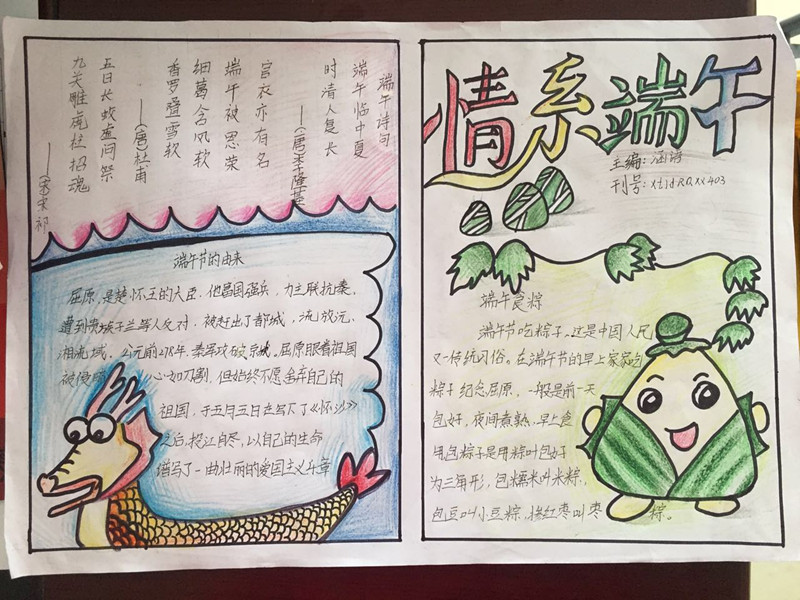 端午诗句
端午临中夏
时清人复长
——(唐)李隆基
宫衣亦有名
端午被恩荣
细葛含风软
香罗叠雪软
——(唐)杜甫
五日长蛟虚问祭
九关雕虎枉招魂
——宋祁
端午节的由来
屈原,是楚怀王的大臣,他昌国强兵,力主联抗秦,
遭到贵族子兰等人反对,被赶出了都城,流放沅、
湘流域,公元前278年,秦军攻破京城。屈原眼看祖国
被侵 心如刀割,但始终不愿舍弃自己的
祖国,于五月五日在写下了《怀沙》
之后,投江自尽,以自己的生命
谱写了一曲壮丽的爱国主义乐章
情系端午
主编:涵诗
刊号:
端午食粽
端午节吃粽子。这是中国人民
又一传统习俗。在端午节的早上家家包
粽子纪念屈原,一般是前一天
包好,夜间煮熟,早上食
用包粽子是用粽叶包好
为三角形,包糯米叫米粽,
包豆叫小豆粽,掺红枣叫枣粽。